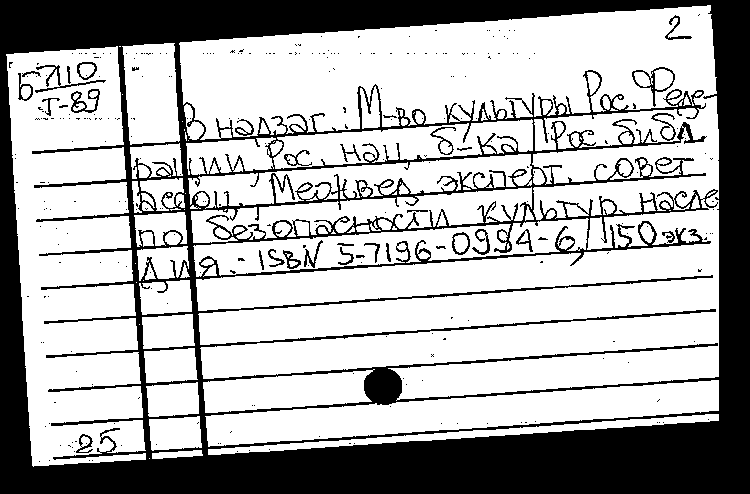 2
Б7110
Т-89
В надзаг.: М-во культуры Рос. Феде-
рации, Рос. нац. б-ка, Рос. библ.
ассоц., Межвед. эксперт. совет
по безопасности культур. насле
дия.- ISBN 5-7196-0994-6, 150 экз.
25